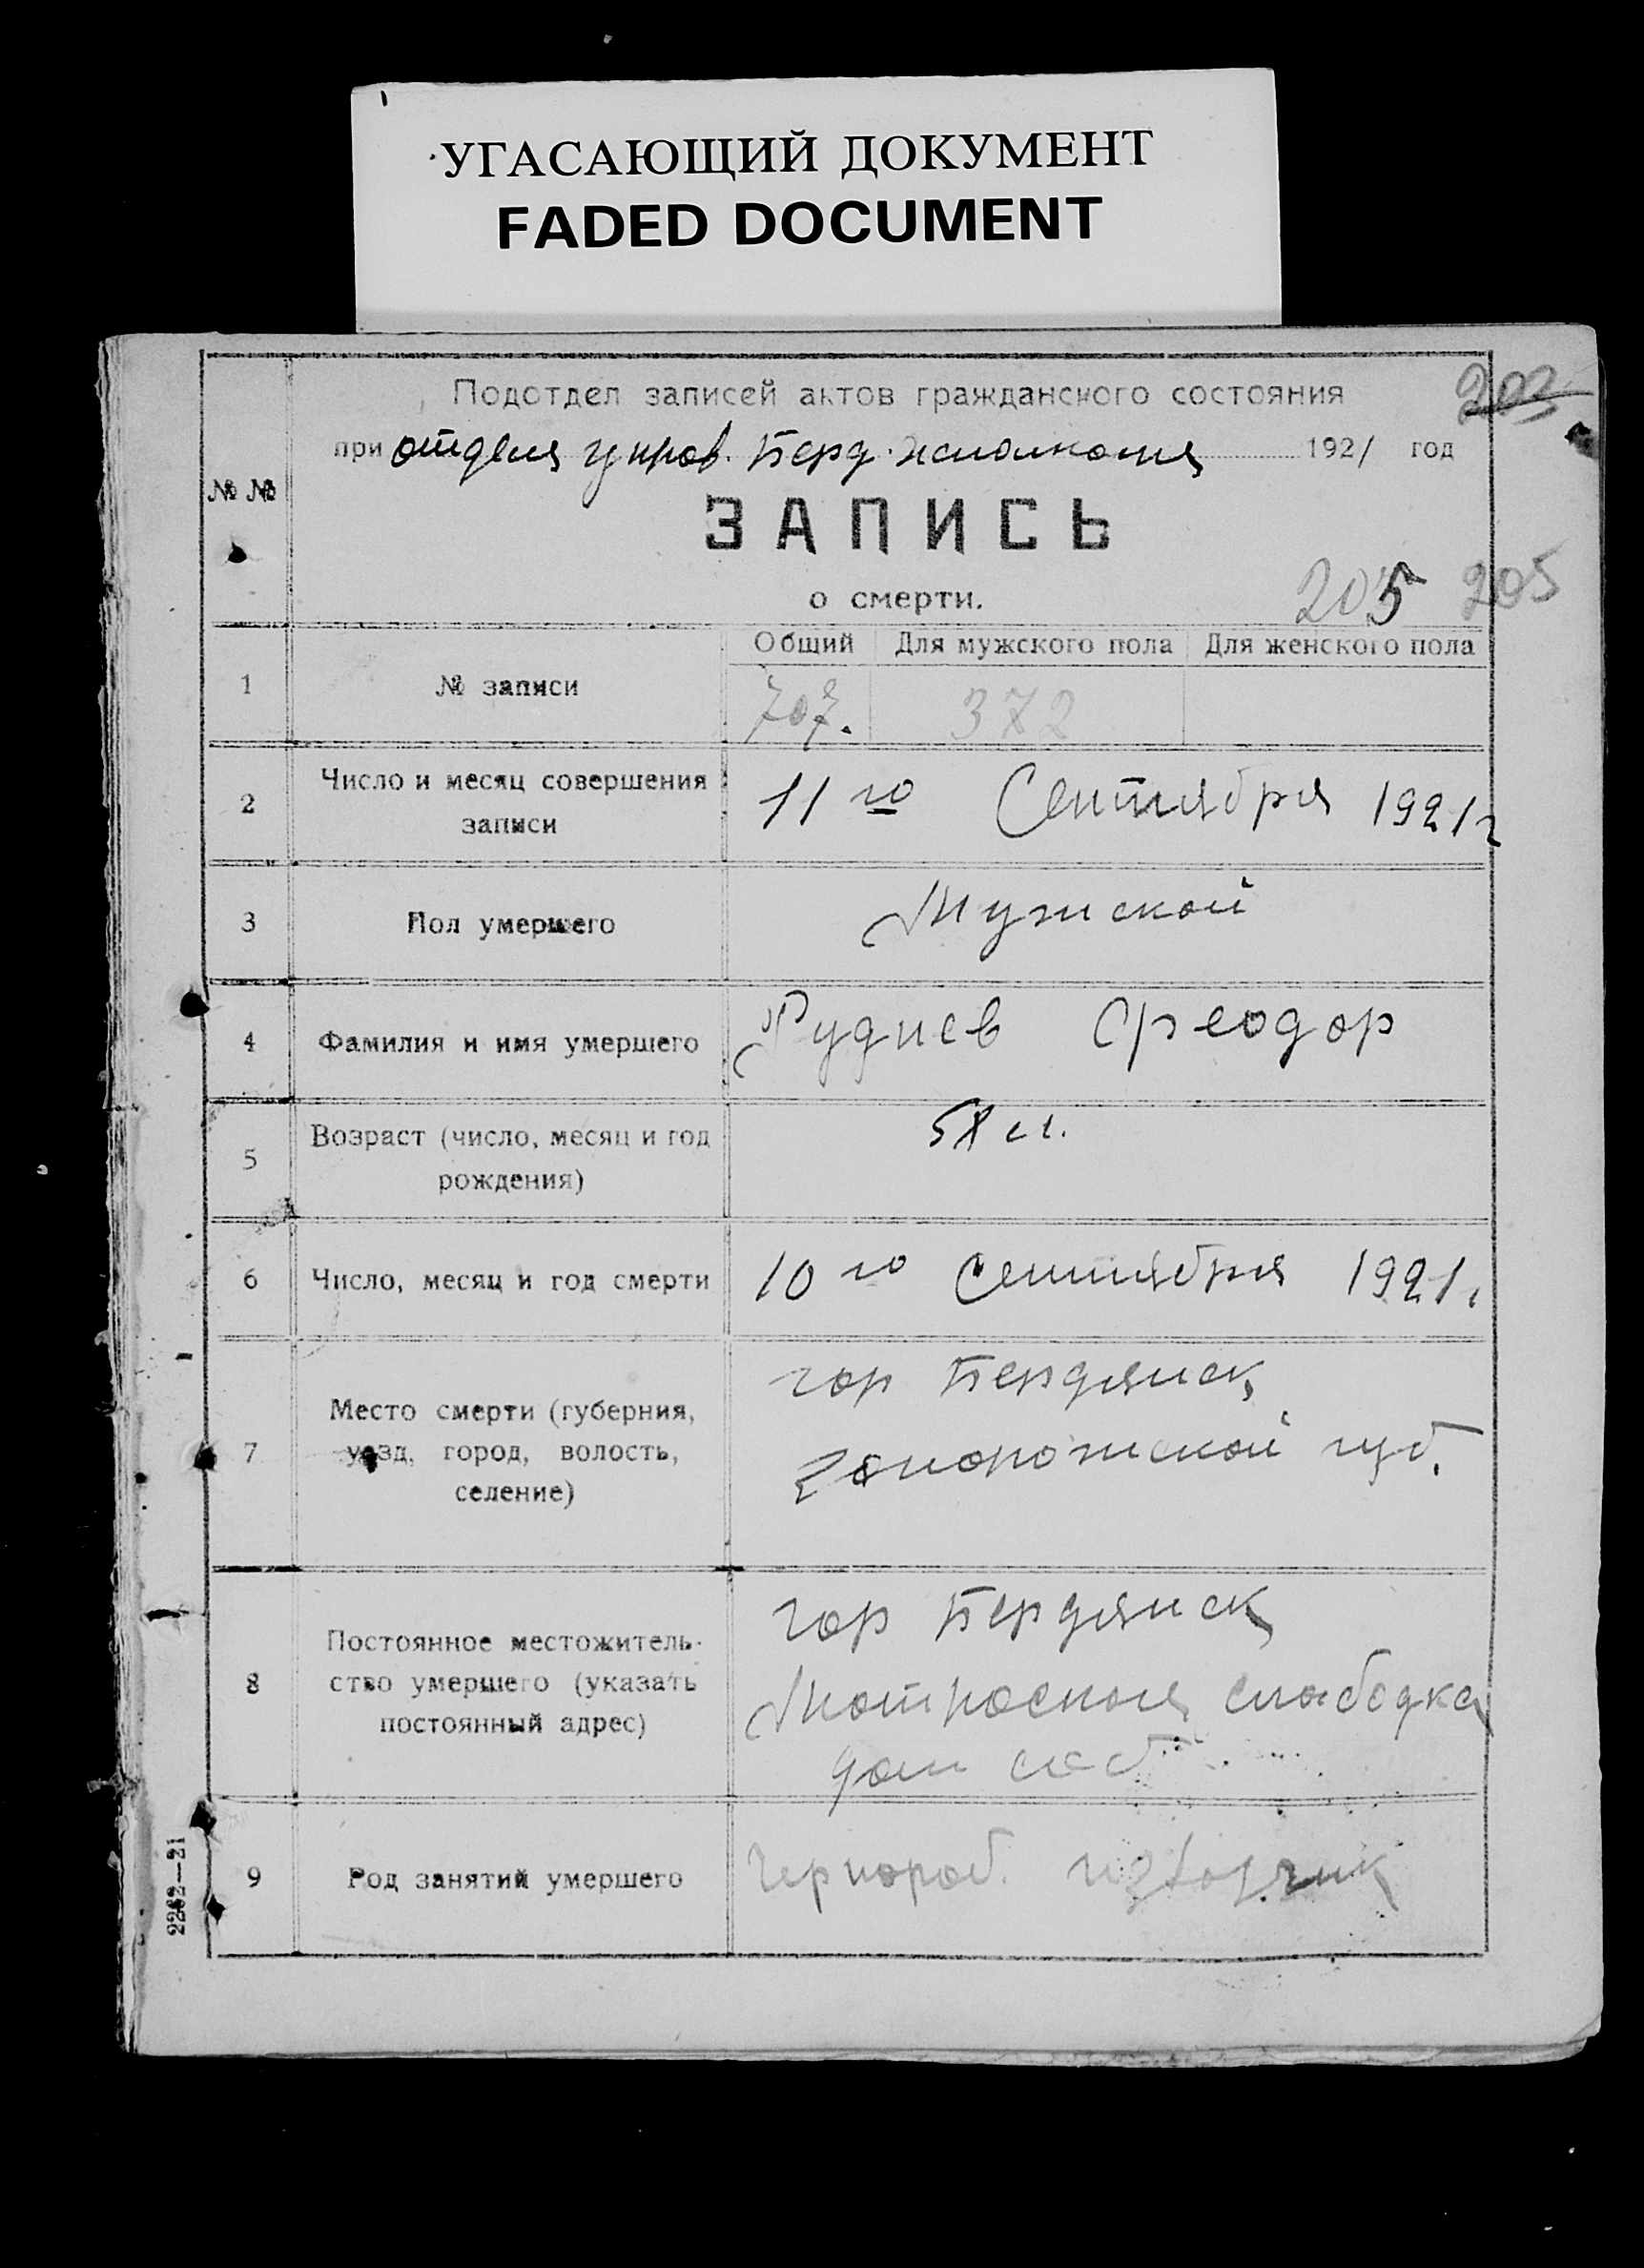 УГАСАЮЩИЙ ДОКУМЕНТ
FADED DOCUMENT
Подотдел записей актов гражданского состояния
202
при отдела управ. Берд. исполкома 1921 год
№ №
ЗАПИСЬ
о смерти.
205 205
Общий Для мужского пола Для женского пола
1 № записи 707. 372
2 Число и месяц совершения
записи
11го Сентября 1921г
3 Пол умершего Мужской
4 Фамилия и имя умершего Руднев Феодор
5 Возраст (число, месяц и год
рождения)
58 л.
6 Число, месяц и год смерти 10го Сентября 1921г
7 Место смерти (губерния,
уезд, город, волость,
селение)
гор Бердянск
Запорожской губ.
8 Постоянное местожитель-
ство умершего (указать
постоянный адрес)
гор Бердянск
Матросская слабодка
дом соб
9 Род занятий умершего Чернораб. извозчик
2262—21